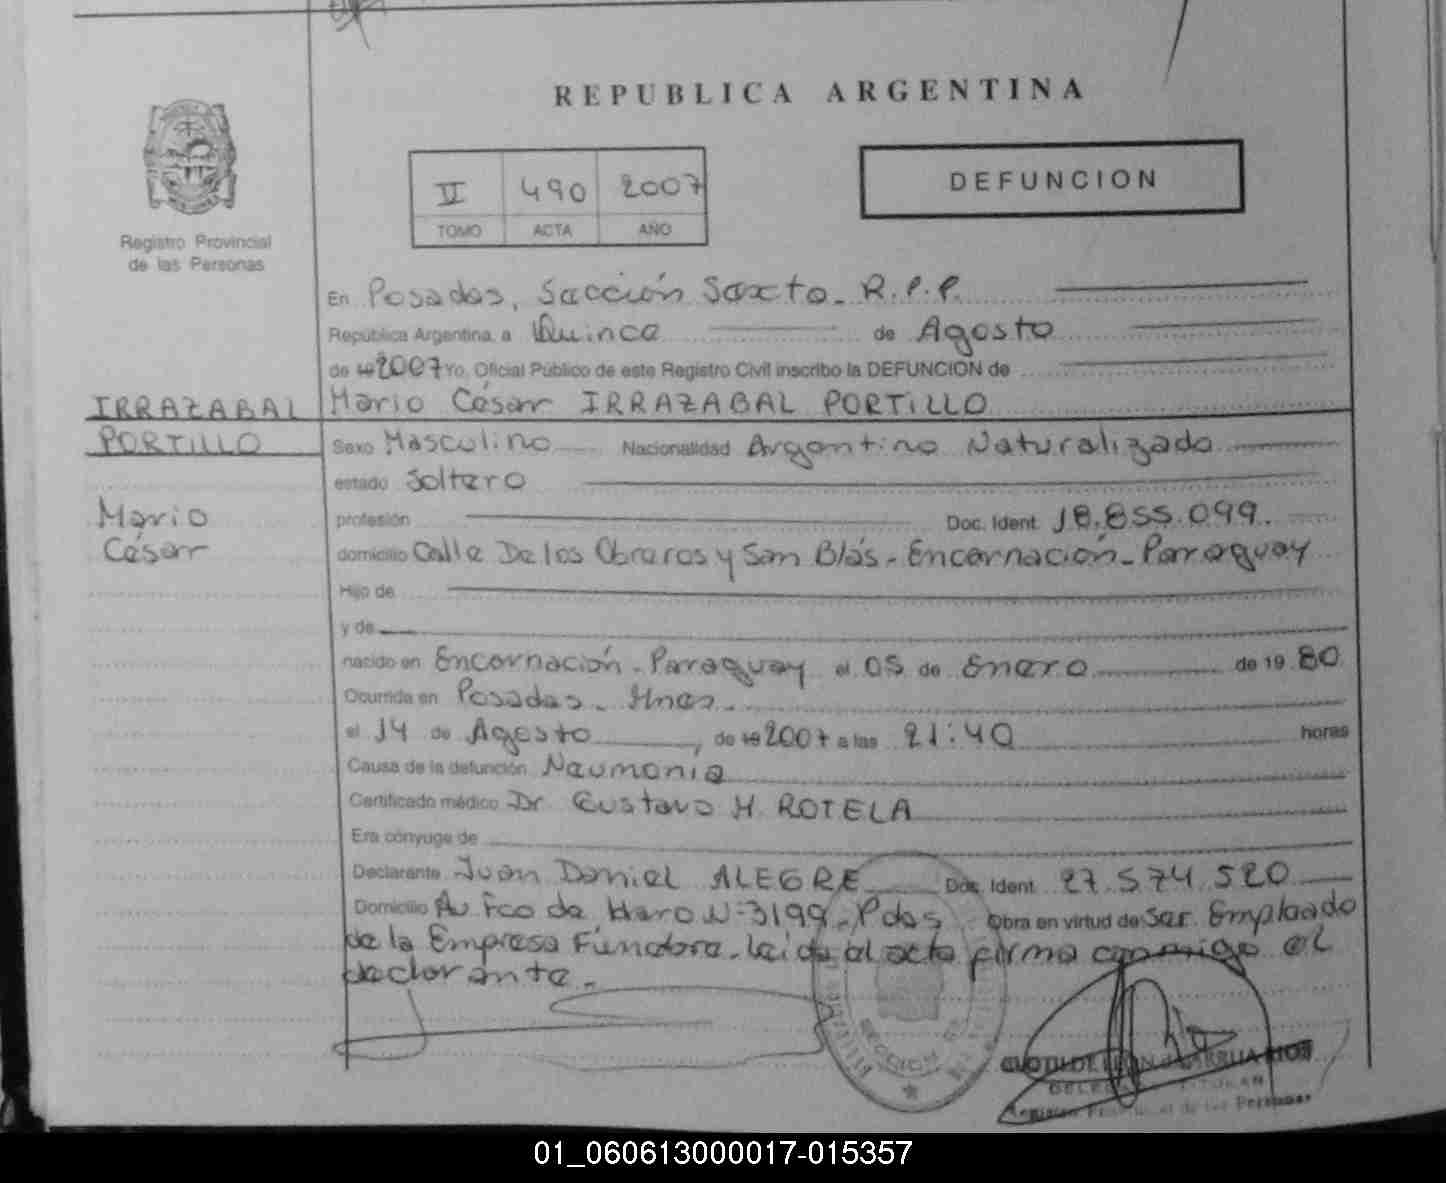 REPUBLICA ARGENTINA
Registro Provincial
de las Personas
II 490 2007
TOMO ACTA AÑO
DEFUNCION
En Posadas, Sección Sexta. R.P.P.
República Argentina, a Quince de Agosto
de 19 2007 Yo, Oficial Público de este Registro Civil inscribo la DEFUNCION de
IRRAZABAL
PORTILLO
Mario
César
Mario César IRRAZABAL PORTILLO
Sexo Masculino Nacionalidad Argentino Naturalizado
estado Soltero
profesión Doc. Ident. 18.855.099.
domicilio Calle De los Obreros y San Blás - Encarnación - Paraguay
Hijo de
y de
nacido en Encarnación - Paraguay el 05 de Enero de 19 80
Ocurrida en Posadas - Mnes.
el 14 de Agosto, de 19 2007 a las 21:40 horas
Causa de la defunción Neumonía
Certificado médico Dr. Gustavo H. ROTELA
Era cónyuge de
Declarante Juan Daniel ALEGRE Doc. Ident. 27.574.520
Domicilio Av Fco de Haro Nº 3199 - Pdas Obra en virtud de Ser Empleado
de la Empresa Fúnebre. Leída el acta firma conmigo el
declarante.
SECCION
01_060613000017-015357